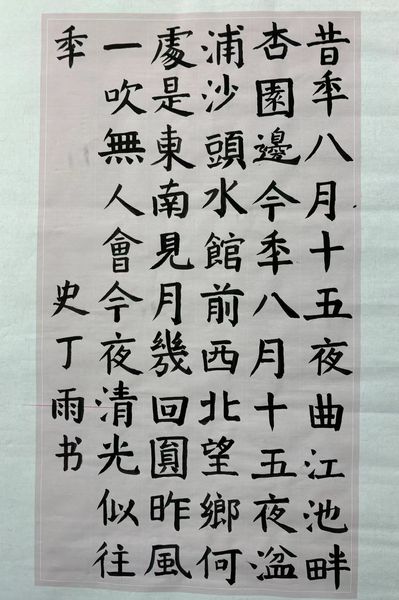 昔秊八月十五夜曲江池畔
杏園邊今秊八月十五夜湓
浦沙頭水館前西北望鄉何
處是東南見月幾回圓昨風
一吹無人會今夜清光似往
秊 史丁雨书